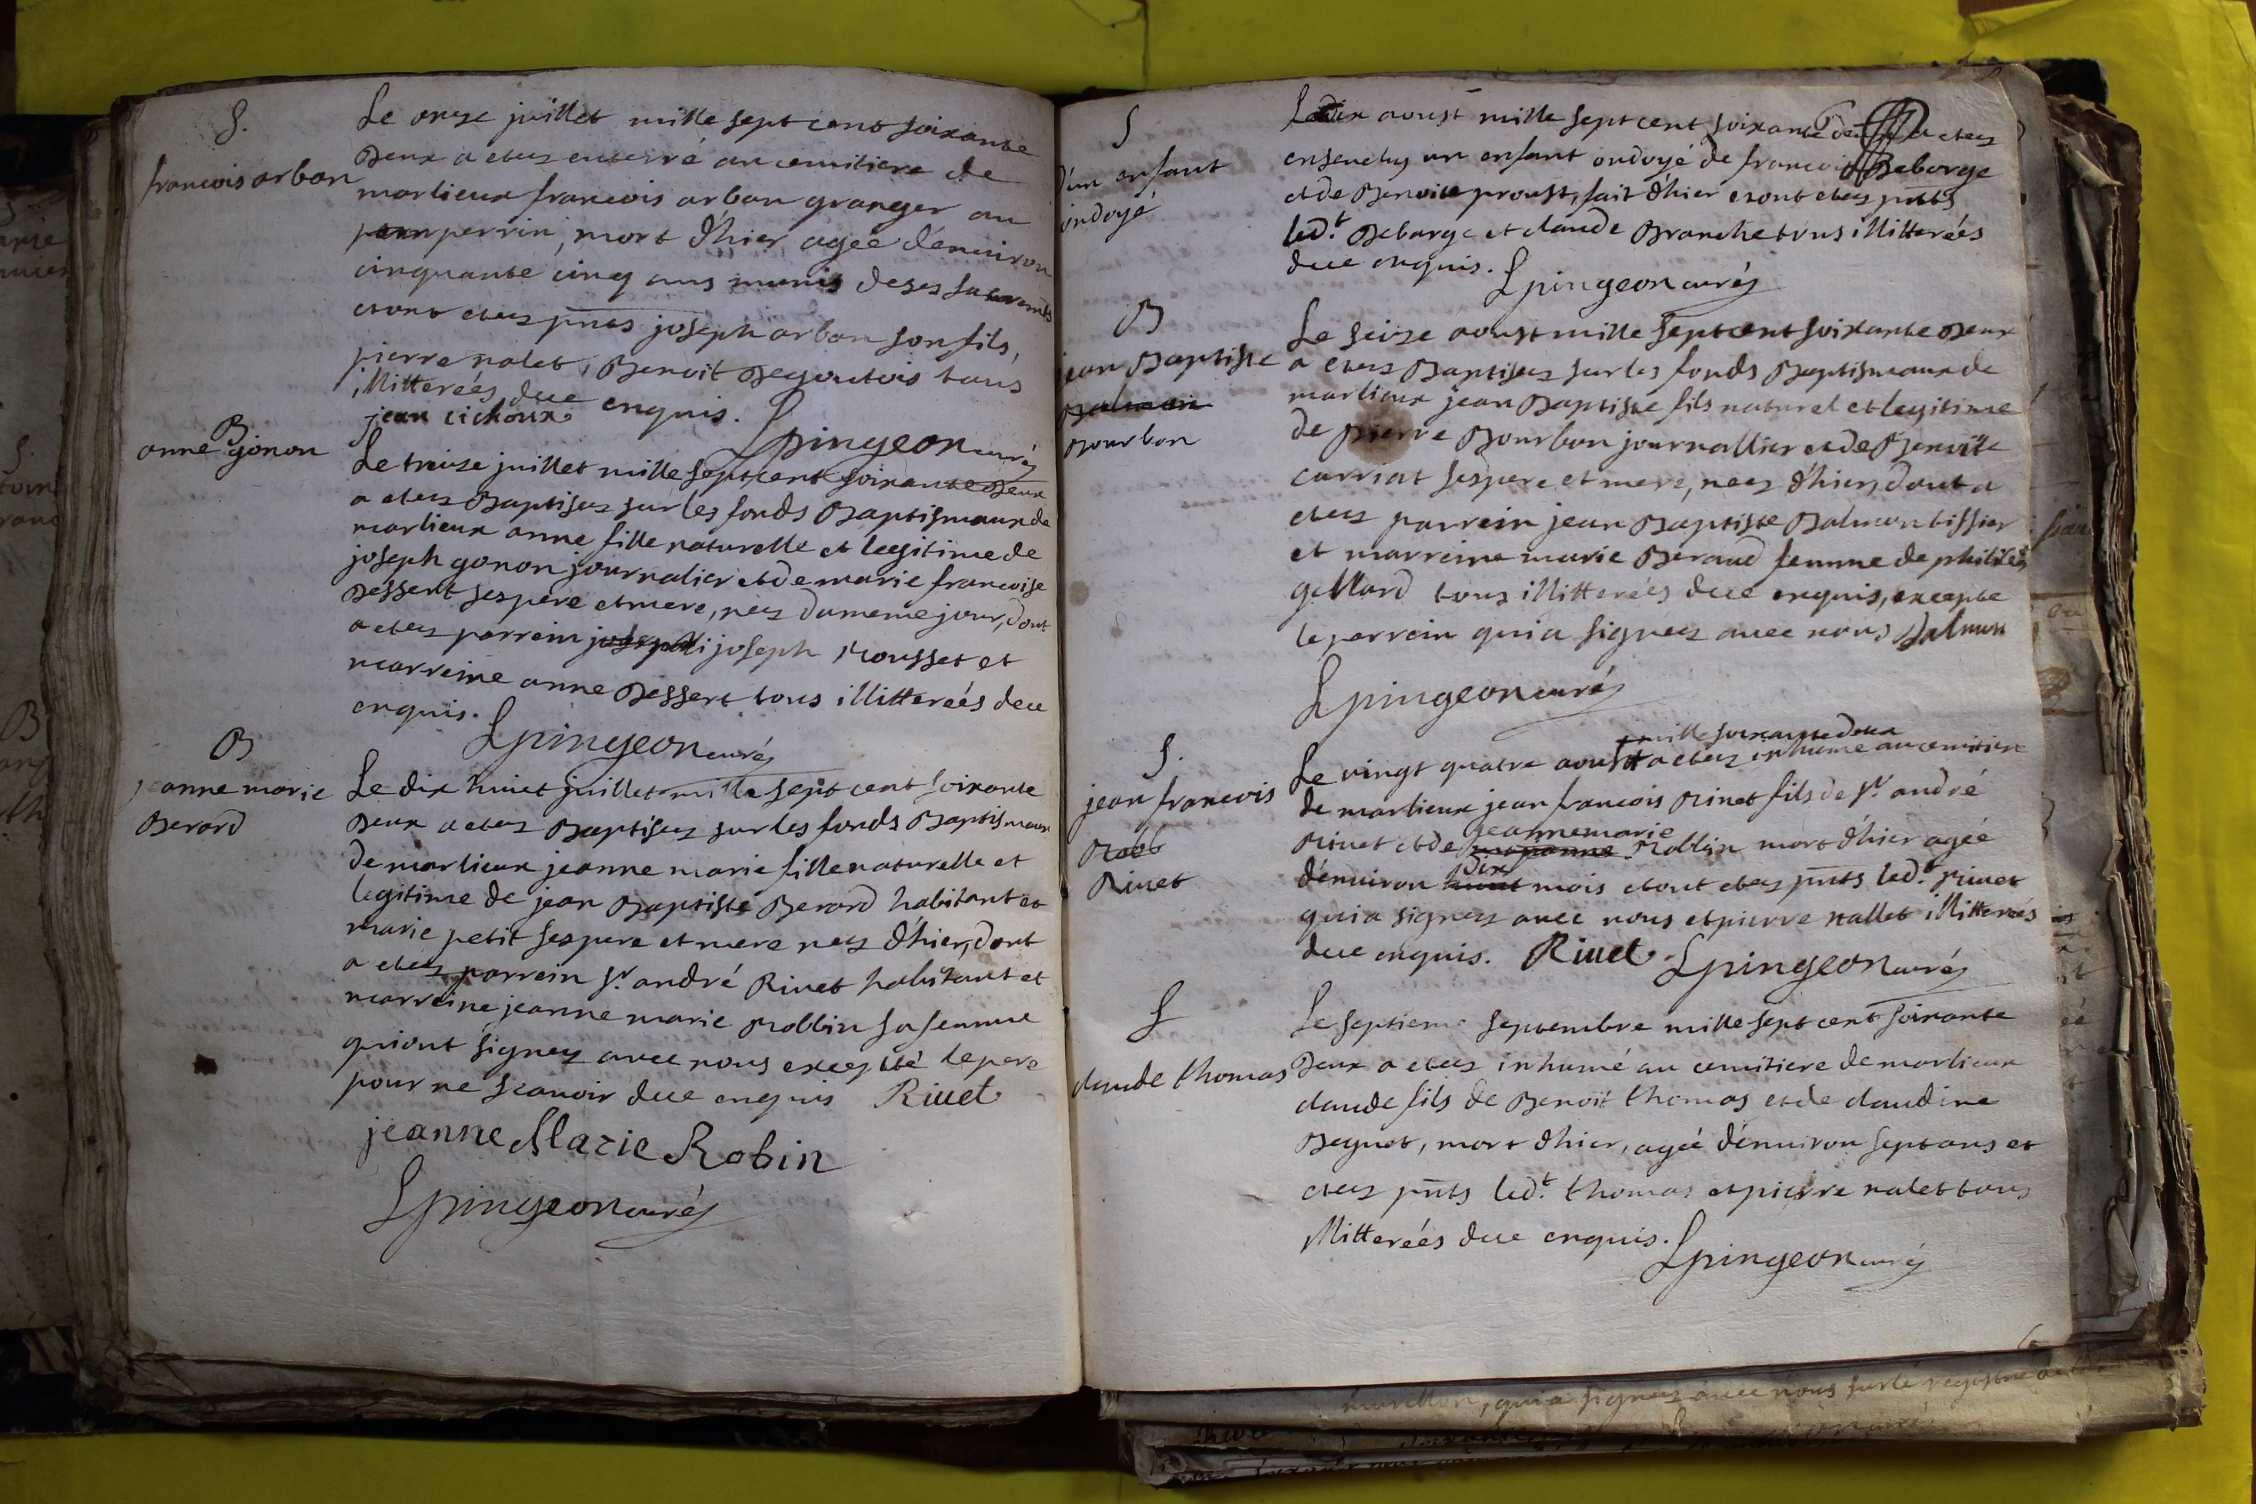 S.
francois arban
Le onze juillet mille sept cent soixante
Deux a etez enterré au cemitiere de
marlieux francois arban granger au
perrin, mort d'hier agée d'énuiron
cinquante cinq ans munis de ses sacrements
et ont etez pnts joseph arban son fils,
pierre nalet, Benoit Degoutois tous
illitterées due enquis.
jean cichoux
Lpingeon curéz
B
anne gonon
Le treize juillet mille sept cent soixante Deux
a etez Baptisez sur les fonds Baptismaux de
marlieux anne fille naturelle et legitime de
joseph gonon journalier et de marie francoise
Dessert ses pere et mere, nez du meme jour, dont
a etez parrein joseph joseph rousset et
marreine anne Dessert tous illitterées due
enquis.
Lpingeon curéz
B
jeanne marie
Berard
Le dix huiet juillet mille sept cent soixante
Deux a etez Baptisez sur les fonds Baptismaux
de marlieux jeanne marie fille naturelle et
legitime de jean Baptiste Berard habitant et
marie petit ses pere et mere nez d'hier, dont
a etez parrein Sr. andré Rivet habitant et
marreine jeanne marie Robbin sa femme
qui ont signez avec nous excepté le pere
pour ne scavoir due enquis Rivet
jeanne Marie Robin
Lpingeon curéz
6
S
D'un enfant
ondoyé
Le dix aoust mille sept cent soixante deux a etez
enseuelys un enfant ondoyé de francois Deborge
et de Benoite proust, fait d'hier et ont etez pnts
led.t Deborge et claude Branche tous illitterées
due enquis.
Lpingeon curéz
B
jean Baptiste
Balmon
Bourbon
Le seize aoust mille sept cent soixante Deux
a etez Baptisez sur les fonds Baptismaux de
marlieux jean Baptiste fils naturel et legitime
de pierre Bourbon journallier et de Benoite
curriat ses pere et mere, nez d'hier, dont a
etez parrein jean Baptiste Balmon tissier
et marreine marie Beraud femme de philibert
gillard tous illitterées due enquis, excepte
le parrein qui a signez avec nous Balmon
Lpingeon curéz
S.
jean francois
Robb
Rivet
mille soixante deux
Le vingt quatre aoust a etez inhumé au cemitiere
de marlieux jean francois Rivet fils de Sr. andré
jeanne marie
Rivet et de Robbin mort d'hier agée
dix
d'énuiron huit mois et ont etez pnts led.t rivet
qui a signez avec nous et pierre nallet illitterées
due enquis. Rivet Lpingeon curéz
S
claude thomas
Le septieme septembre mille sept cent soixante
Deux a etez inhumé au cemitiere de marlieux
claude fils de Benoit thomas et de claudine
Beguet, mort d'hier, agée d'énuiron sept ans et
etez pnts led.t thomas et pierre nalet tous
illitterées due enquis.
Lpingeon curéz
qui a signez avec nous sur le registre